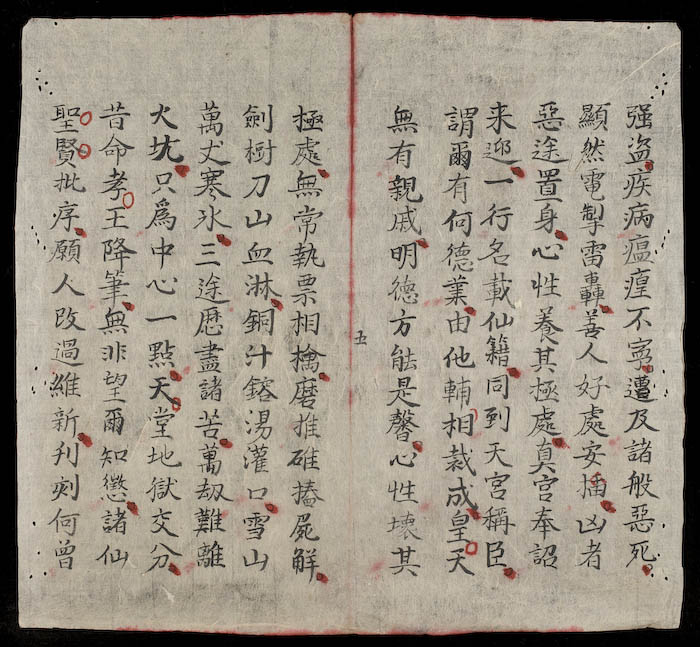 强盗疾病瘟瘽不寧遭及諸般惡死
顯然電掣雷轟善人好處安插凶者
惡途置身心性養其極處真宫奉詔
来迎一行名載仙籍同到天宫稱臣
謂爾有何德業由他輔相裁成皇天
無有親戚明德方能是馨心性壞其
五
極處無常執票相擒磨推碓搸屍解
劍樹刀山血淋銅汁鎔湯灌口雪山
萬丈寒氷三途歴盡諸苦萬刼難離
火坑只爲中心一點天堂地獄交分
昔命孝王降筆無非望爾知懲諸仙
聖賢批序願人改過維新刋刻何曾